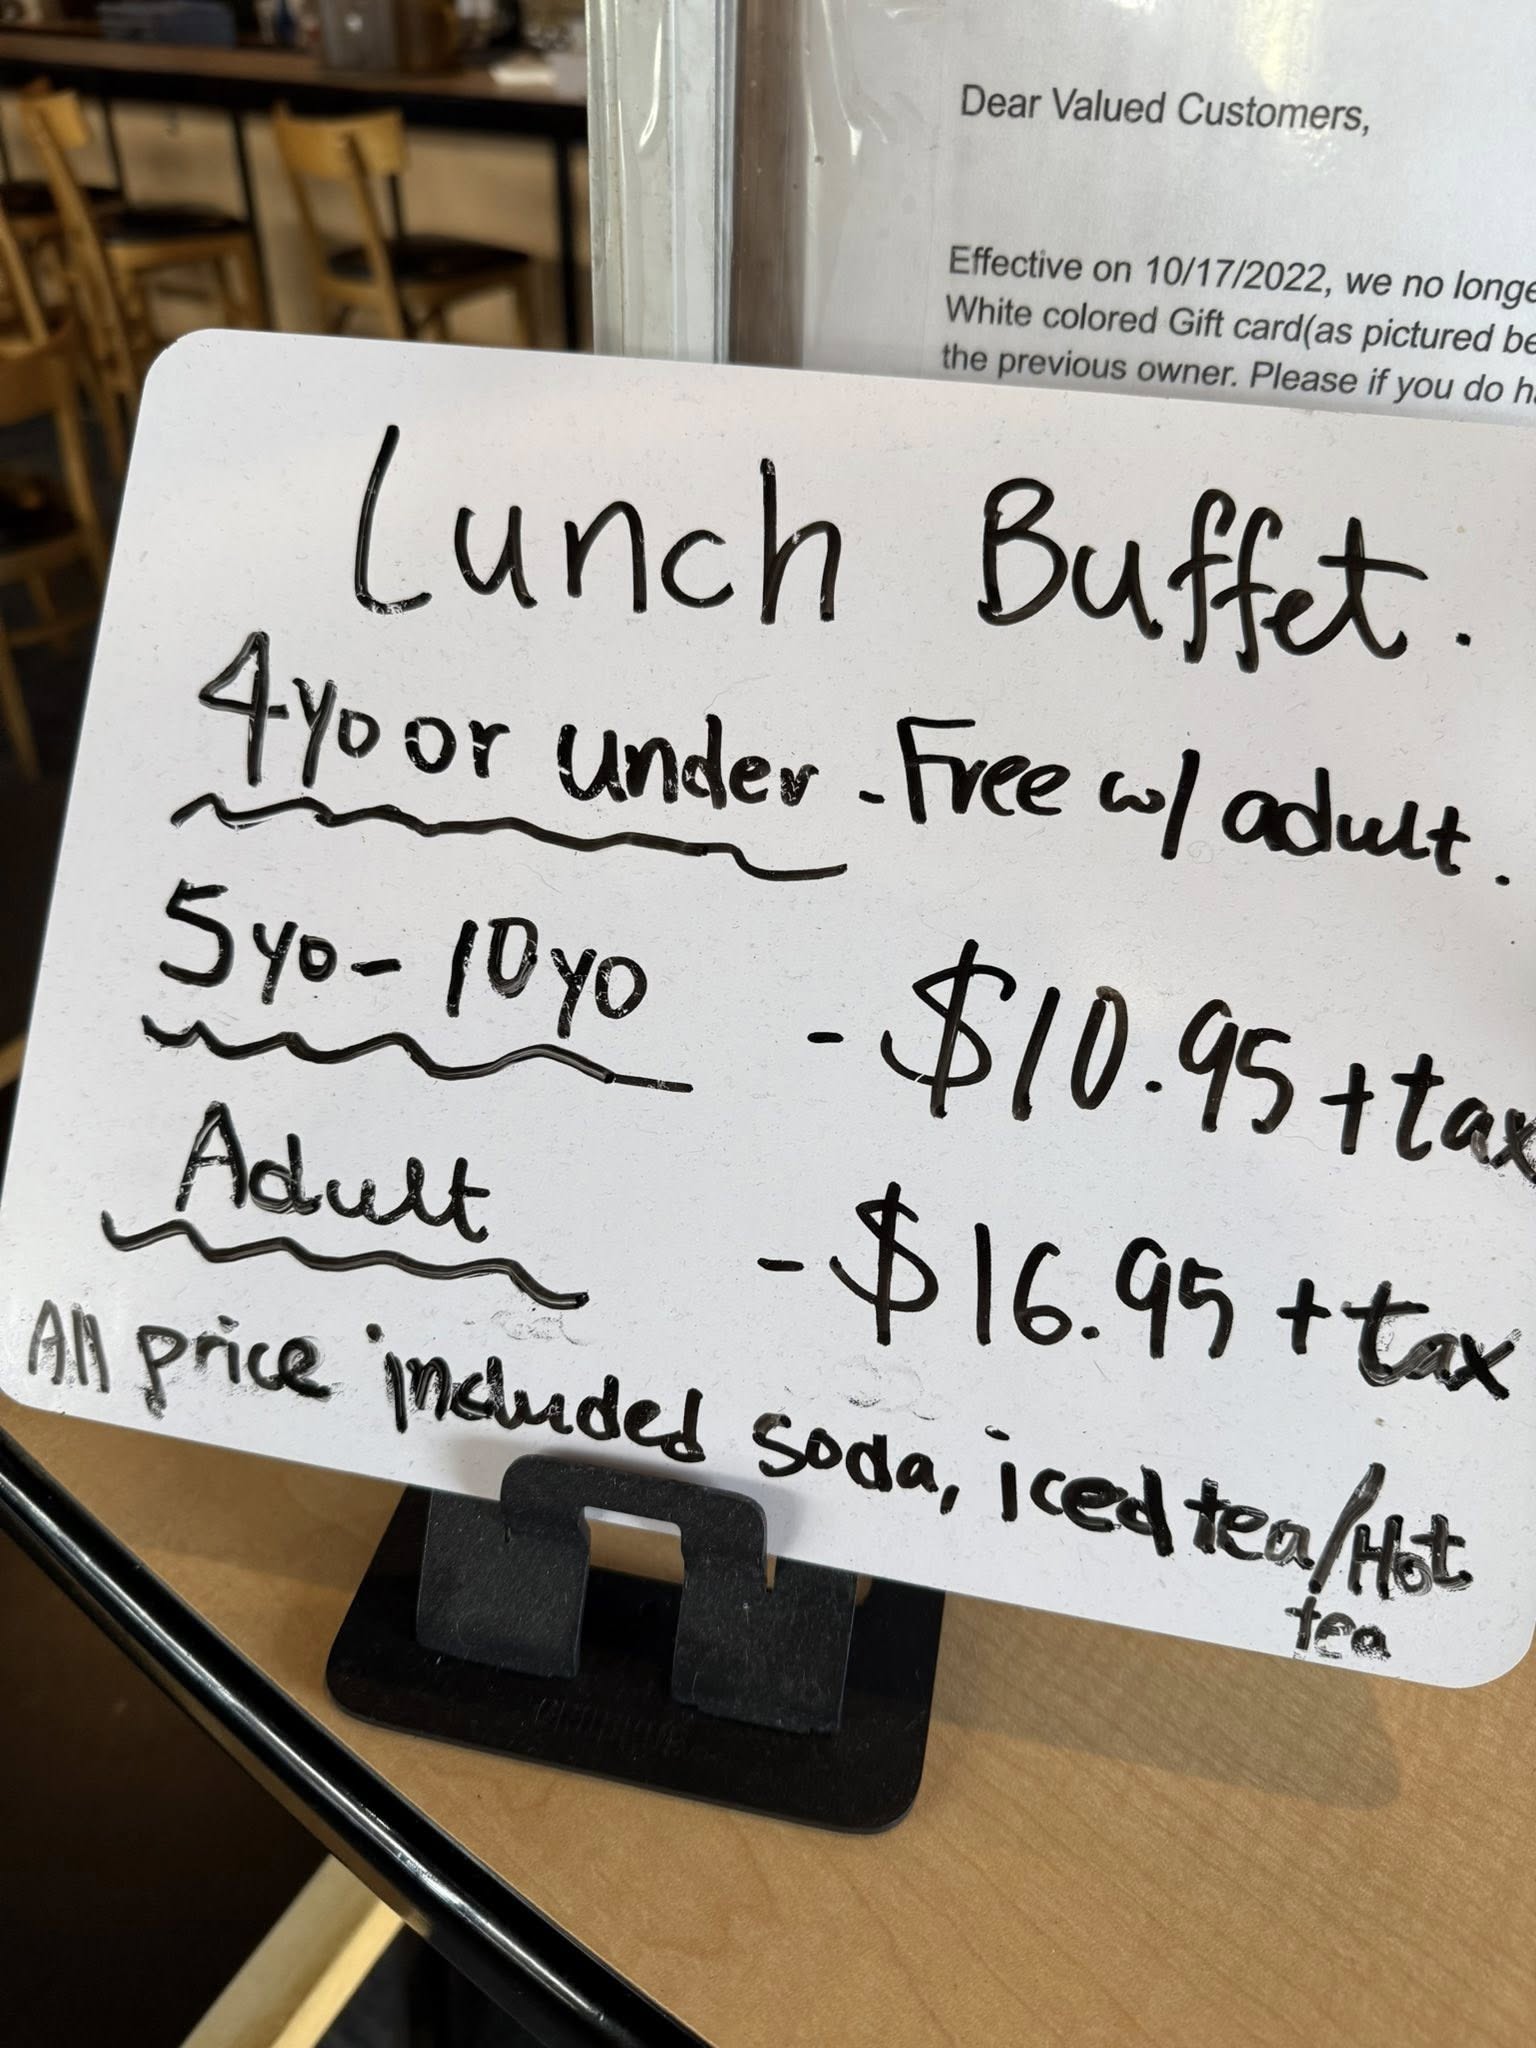 Dear Valued Customers,
Effective on 10/17/2022, we no longe
White colored Gift card(as pictured be
the previous owner. Please if you do ha
Lunch Buffet.
4yo or under - Free w/ adult.
5yo - 10yo - $10.95 + tax
Adult - $16.95 + tax
All price included soda, iced tea/Hot
tea